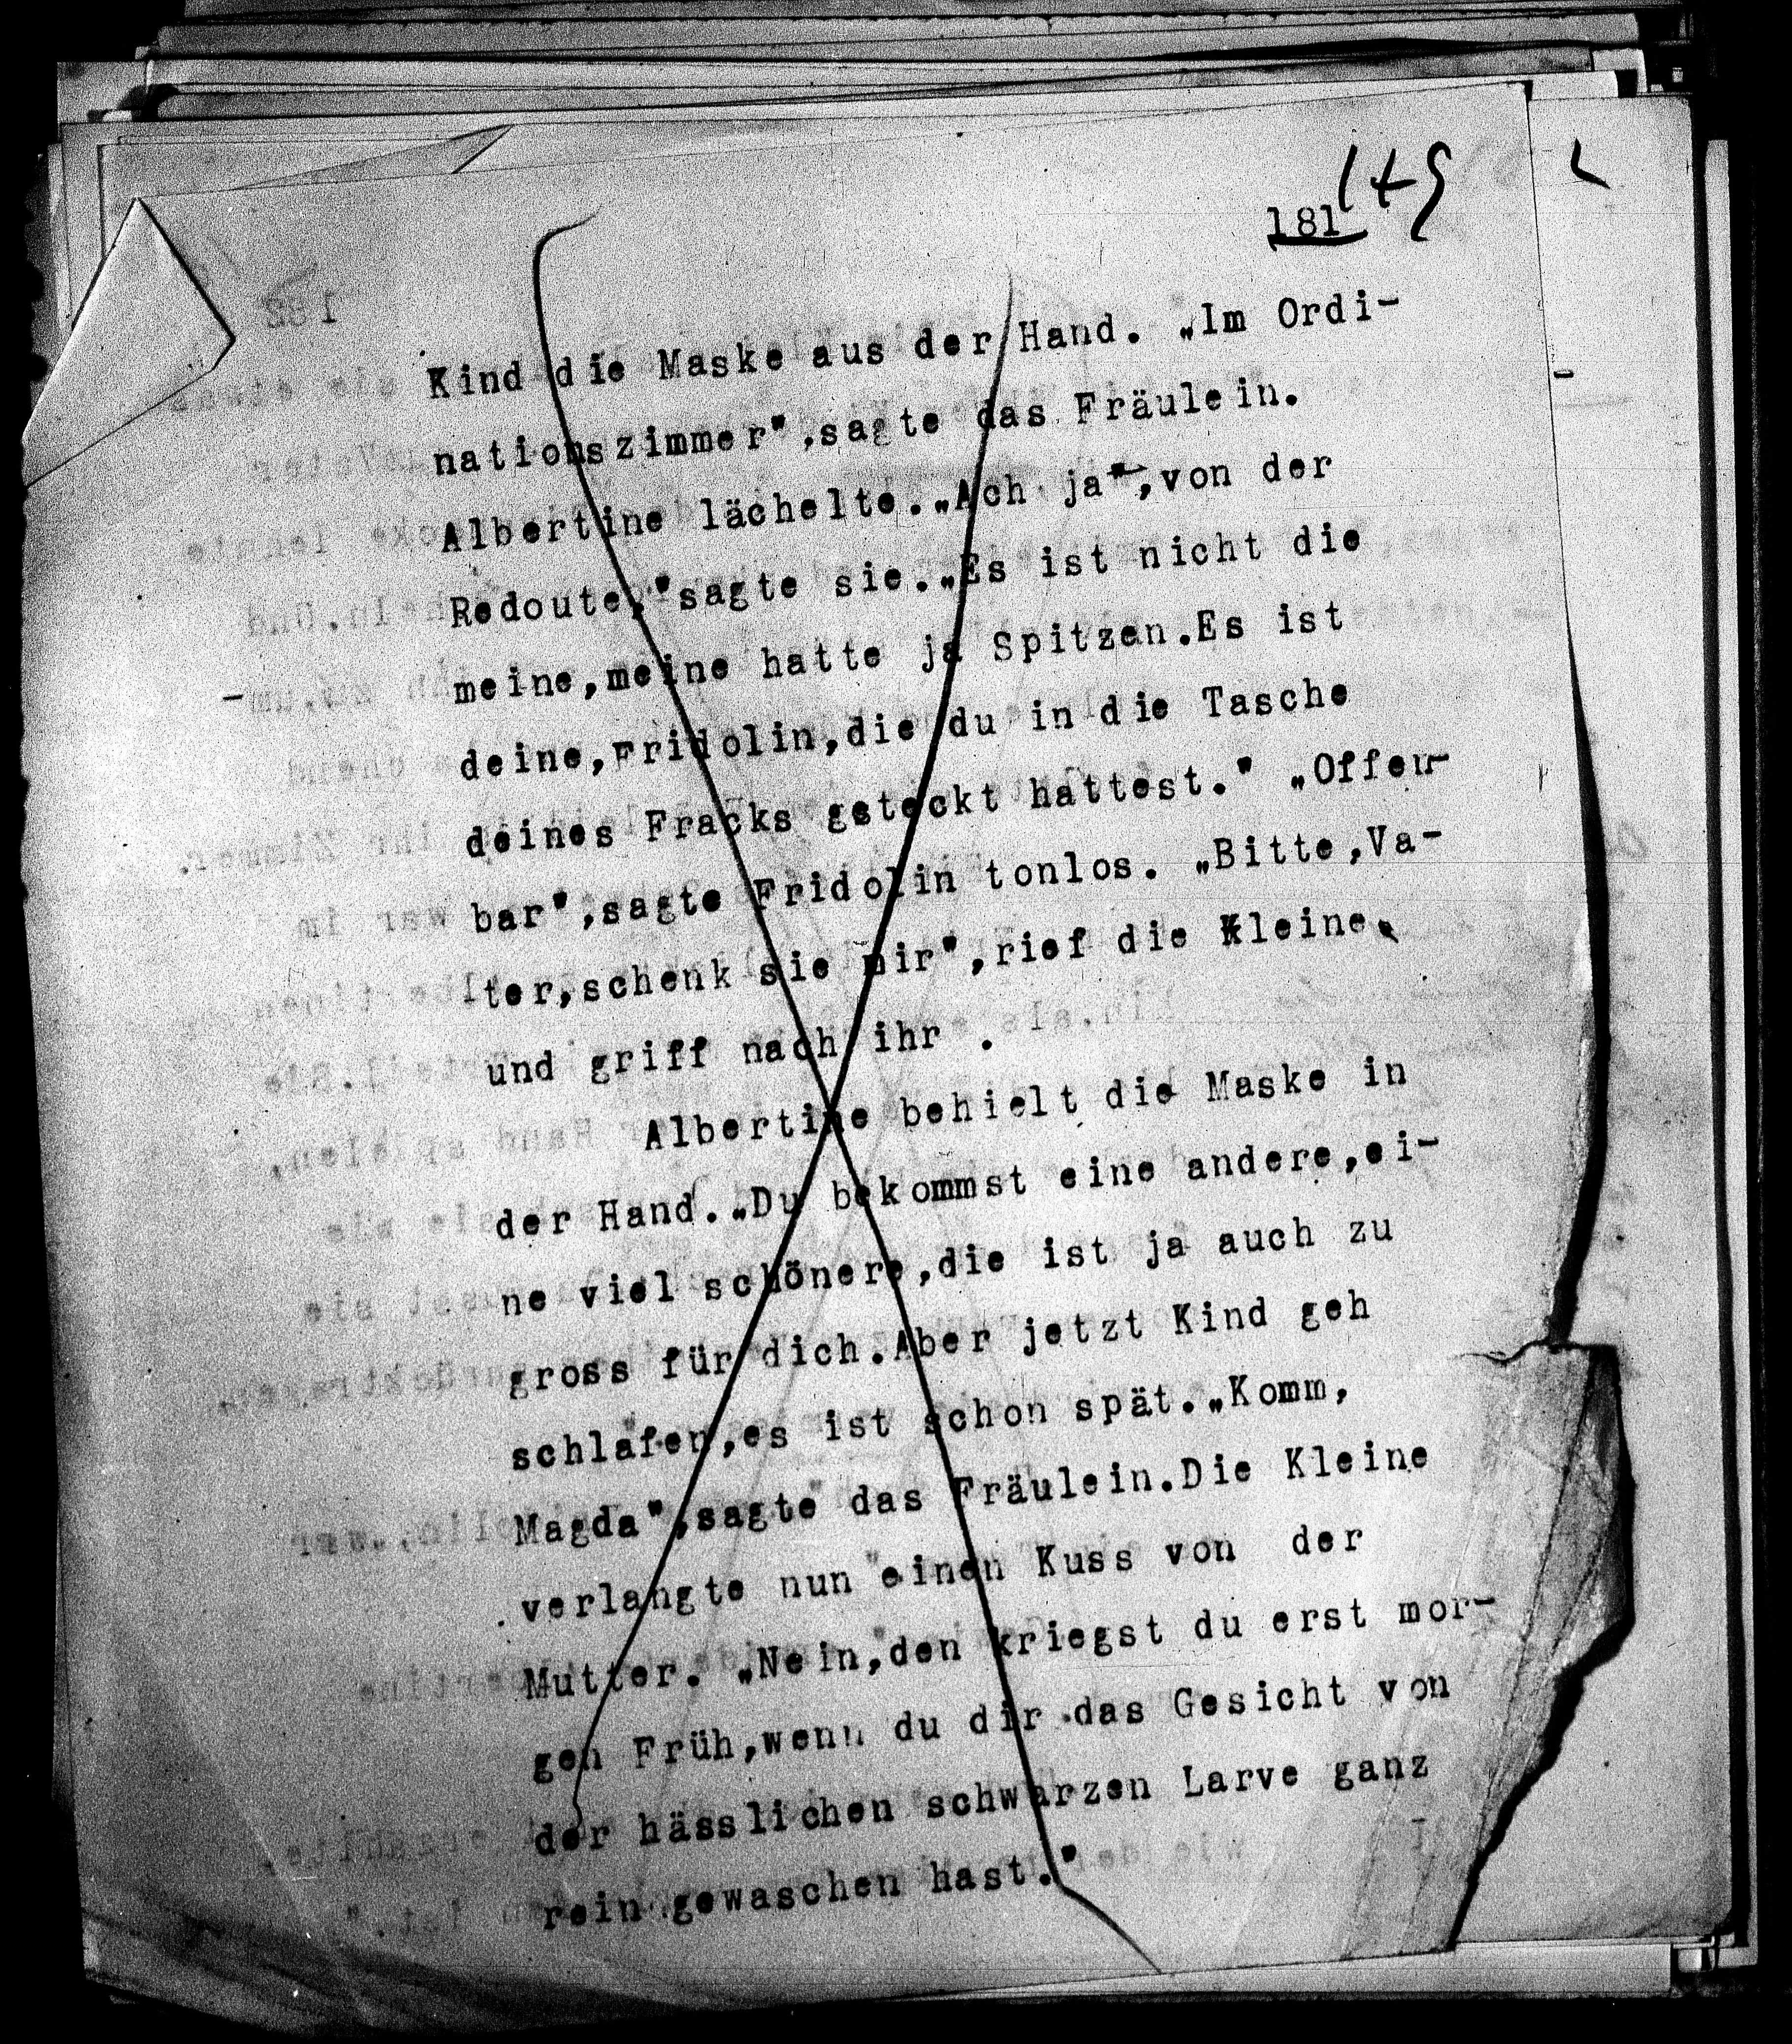 149
181
Kind die Maske aus der Hand. „Im Ordi-
nationszimmer",sagte das Fräulein.
Albertine lächelte.„Ach ja",von der
Redoute,"sagte sie.„Es ist nicht die
meine,meine hatte ja Spitzen.Es ist
deine,Fridolin,die du in die Tasche
deines Fracks gsteckt hattest." „Offen-
bar",sagte Fridolin tonlos. „Bitte,Va-
ter,schenk sie mir",rief die Kleine
und griff nach ihr .
Albertine behielt die Maske in
der Hand.„Du bekommst eine andere,ei-
ne viel schönere,die ist ja auch zu
gross für dich.Aber jetzt Kind geh
schlafen,es ist schon spät.„Komm,
Magda",sagte das Fräulein.Die Kleine
verlangte nun einen Kuss von der
Mutter. „Nein,den kriegst du erst mor-
gen Früh,wenn du dir das Gesicht von
der hässlichen schwarzen Larve ganz
rein gewaschen hast."